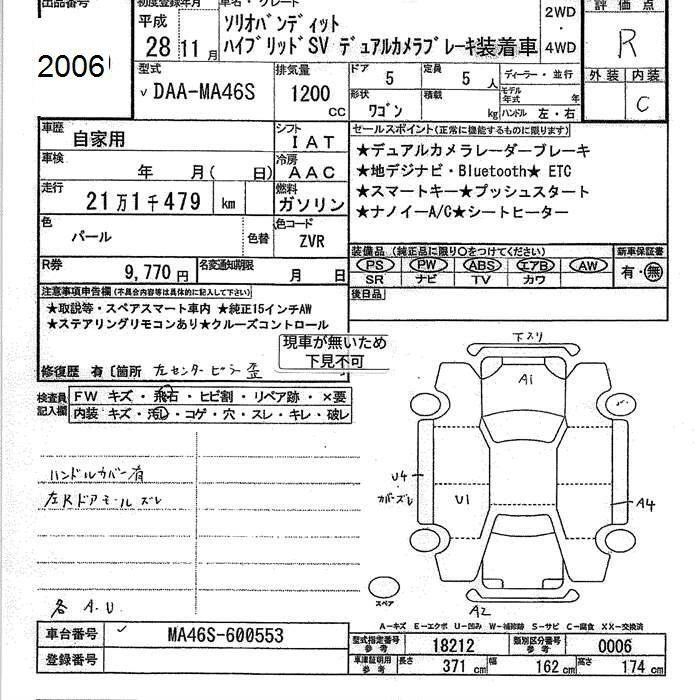 出品番号
2006
初度登録年月
平成
28年 11月
車名・グレード
ソリオバンディット
ハイブリッドSV デュアルカメラブレーキ装着車
2WD
・
4WD
評価点
R
外装 内装
C
型式
DAA-MA46S
排気量
1200
CC
ドア
5
定員
5 人
ディーラー・並行
モデル年式 年
形状
ワゴン
積載
kg
ハンドル 左・右
車歴
自家用
シフト
IAT
車検
年 月( 日)
冷房
AAC
走行
21万1千479 km
燃料
ガソリン
色
パール
色替
色コード
ZVR
R券
9,770円
名変通知期限
月 日
セールスポイント(正常に機能するものに限ります)
★デュアルカメラレーダーブレーキ
★地デジナビ・Bluetooth★ ETC
★スマートキー★プッシュスタート
★ナノイーA/C★シートヒーター
装備品 (純正品に限り○をつけてください)
PS PW ABS エアB AW
SR ナビ TV カワ
新車保証書
有・無
後日品
注意事項申告欄(不具合内容等は具体的に記入して下さい)
★取説等・スペアスマート車内 ★純正15インチAW
★ステアリングリモコンあり★クルーズコントロール
現車が無いため
下見不可
修復歴 有〔箇所 左センターピラー歪
検査員記入欄
FW キズ・飛石・ヒビ割・リペア跡・×要
内装 キズ・汚れ・コゲ・穴・スレ・キレ・破レ
ハンドルカバー有
左Rドアモールズレ
各 A.U
下スリ
A1
U4
カバーズレ
U1
A4
A2
スペア
A-キズ E-エクボ U-凹み W-補修跡 S-サビ C-腐食 XX-交換済
車台番号
MA46S-600553
登録番号
型式指定番号
参考
18212
類別区分番号
参考
0006
車庫証明用
参考
長さ 371 cm
幅 162 cm
高さ 174 cm